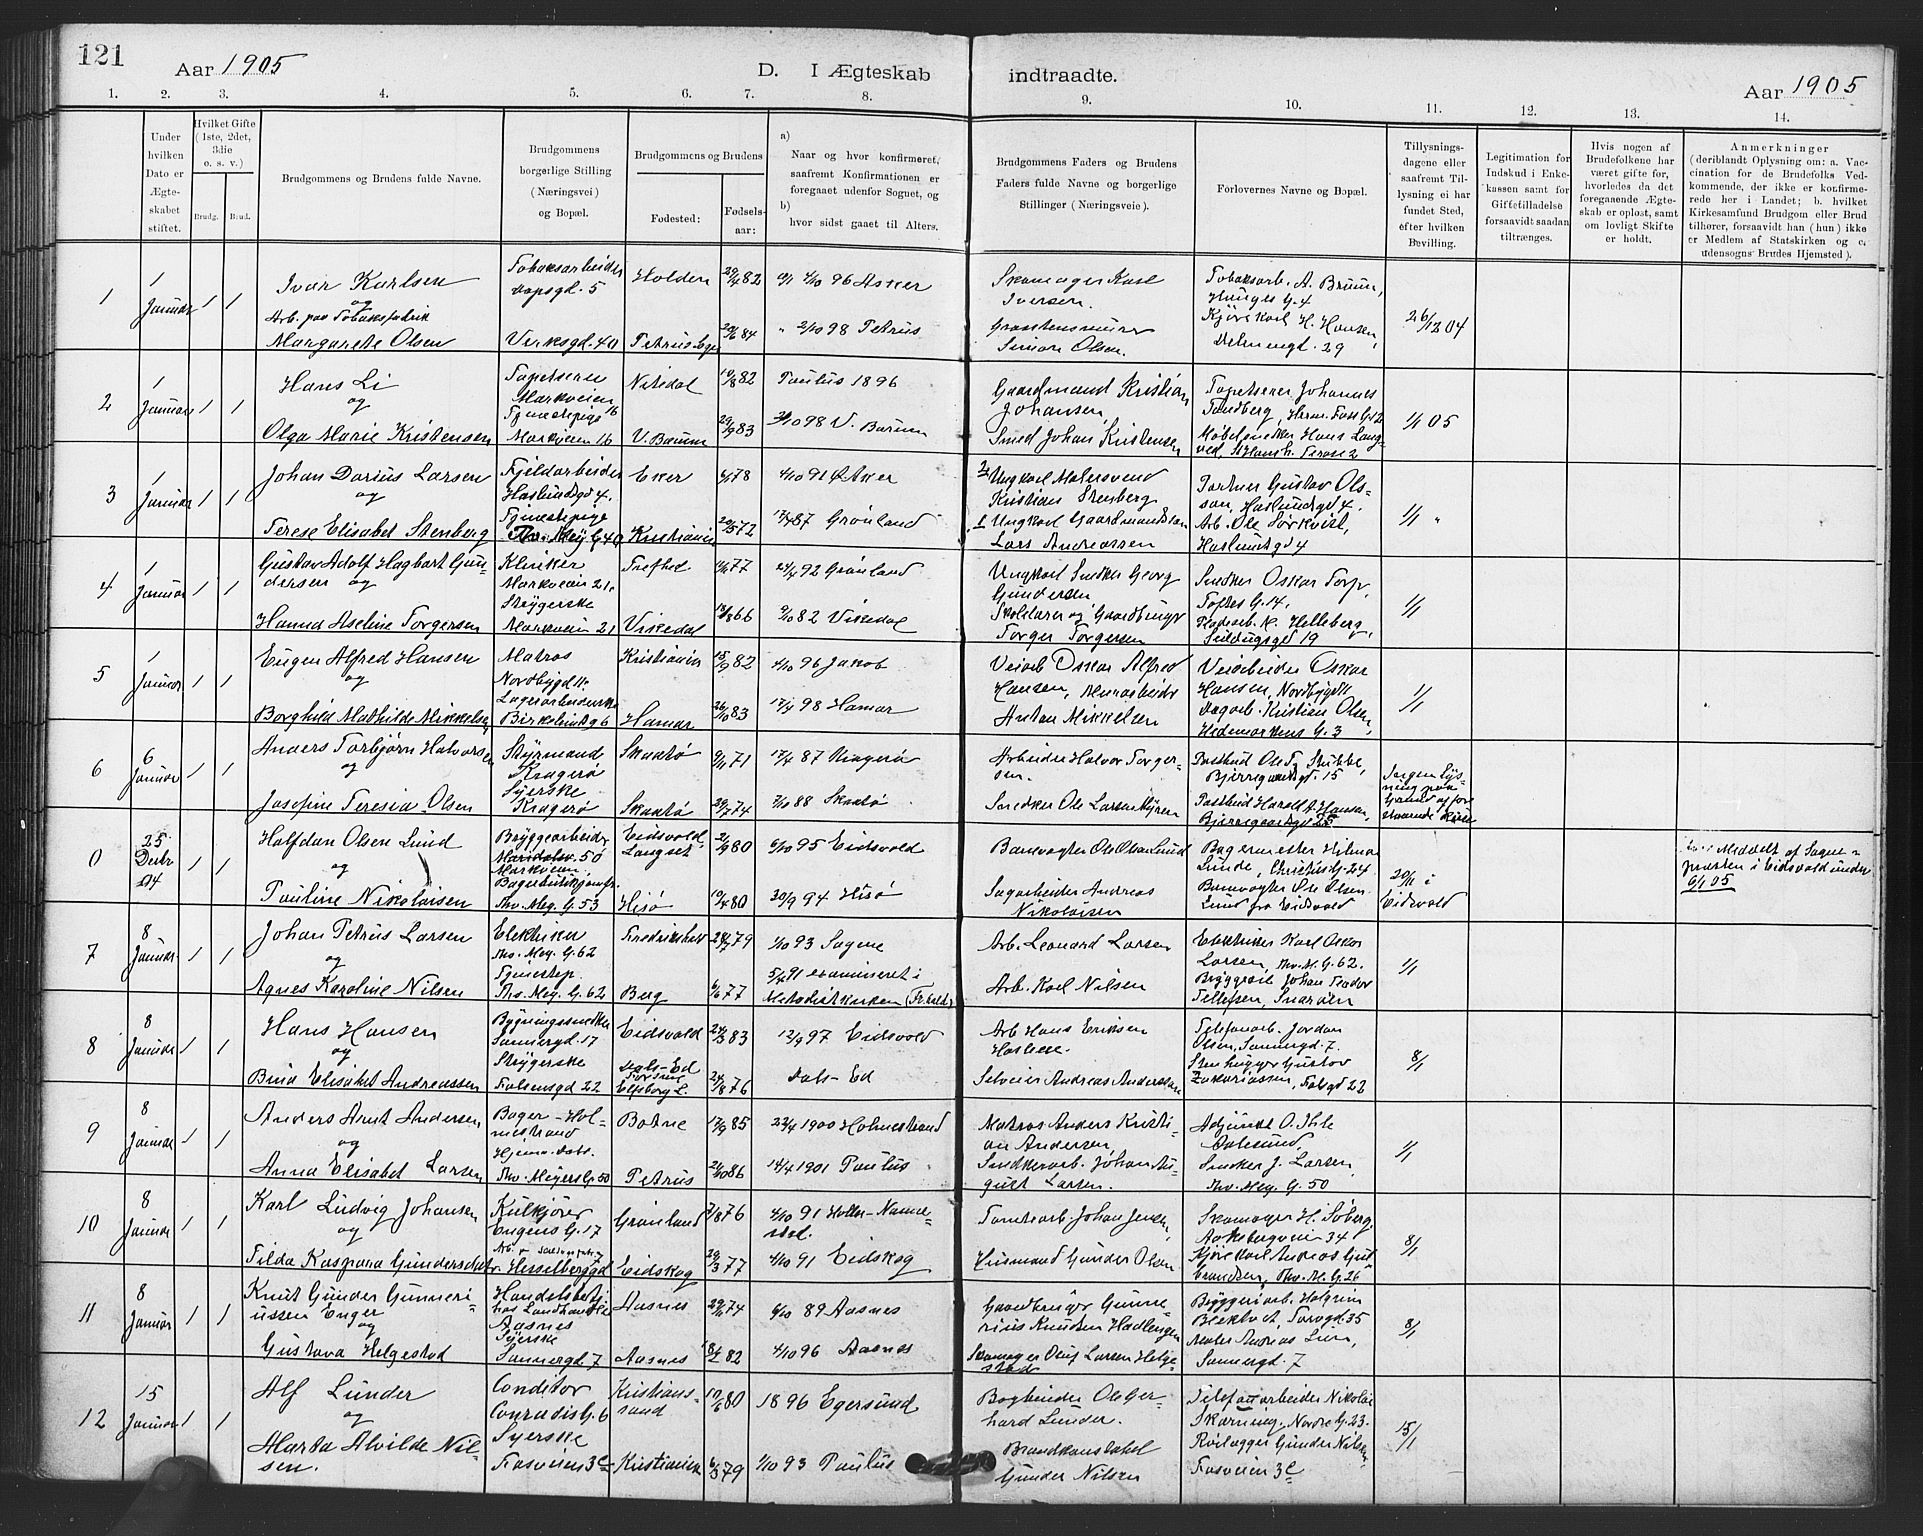 121
Aar 1905
D. I Ægteskab indtraadte.
Aar 1905
1. 2. 3. 4. 5. 6. 7. 8. 9. 10. 11. 12. 13. 14.
Under hvilken Dato er Ægteskabet stiftet.
Hvilket Gifte (1ste, 2det, 3die o. s. v.)
Brudg. Brud.
Brudgommens og Brudens fulde Navne.
Brudgommens borgerlige Stilling (Næringsvei) og Bopæl.
Brudgommens og Brudens
Fødested: Fødselsaar:
a) Naar og hvor konfirmeret, saafremt Konfirmationen er foregaaet udenfor Sognet, og
b) hvor sidst gaaet til Alters.
Brudgommens Faders og Brudens Faders fulde Navne og borgerlige Stillinger (Næringsveie).
Forlovernes Navne og Bopæl.
Tillysningsdagene eller saafremt Tillysning ei har fundet Sted, efter hvilken Bevilling.
Legitimation for Indskud i Enkekassen samt for Giftetilladelse forsaavidt saadan tiltrænges.
Hvis nogen af Brudefolkene har været gift før, hvorledes da det foregaaende Ægteskab er opløst, samt om lovligt Skifte er holdt.
Anmerkninger (deriblandt Oplysning om: a. Vaccination for de Brudefolks Vedkommende, der ikke er konfirmerede her i Landet; b. hvilket Kirkesamfund Brudgom eller Brud tilhører, forsaavidt han (hun) ikke er Medlem af Statskirken og c. udensogns Brudes Hjemsted).
1
1 Januar
1 1
Ivar Karlsen
og
Arb. paa Tobaksfabrik
Margarete Olsen
Tobaksarbeider
Verksgd. 40
Holden
29/4 82
4/10 96 Asker
2/10 98 Petrus
Skomager Karl
Iversen.
Simon Olsen.
Tobaksarb. A. Bruun,
Hauges G. 4
Kjørekarl H. Hansen,
29
26/12 04
2
1 Januar
1 1
Hans Li
og
Olga Marie Kristensen
Tapetserer
Markveien 16
Tjenestepige
Markveien 16
Nitedal
V. Bærum
19/8 82
29/9 83
Paulus 1896
V. Bærum
Gaardmand Kristian
Johansen,
Smed Johan Kristensen
Tapetserer Johannes
Sandberg, Herm. Foss G. 12
Møbelsnedker Hans Lang-
1/1 05
3
1 Januar
1 1
Johan Darius Larsen
og
Terese Elisabet Stenberg
Fjeldarbeider
Haslundsgd 4.
Tjenestepige
Thv. Mey. G 40
Eker
Kristiania
78
29/5 72
4/10 91 Ø Aker
87 Grønland
Ungkarl Malersvend
Kristian Stenberg
Ungkarl Gaardmandssøn
Lars Andreassen
Portner Gustav Ols-
son, Haslundsgd 4.
Arb. Ole Sørkvist,
Haslundsgd 4
1/1 "
4
1 Januar
1 1
Gustav Adolf Hagbart Gun-
dersen og
Hanna Aseline Torgersen
Klinker
Markveien 21.
Strygerske
Markveien 21
Vikedal
77
18/8 66
92 Grønland
9/10 82 Vikedal
Ungkarl Snedker Georg
Gundersen
Skolelærer og Gaardbruger
Torger Torgersen
Snedker Oskar Torp,
Toftes G. 14,
K. Helleberg,
Seildugsgd 19
1/1
5
1 Januar
1 1
Eugen Alfred Hansen
og
Borghild Mathilde Mikkelsen
Matros
Nordbygd 11.
Lagerarbeiderske
Birkelundsg 6
Kristiania
Hamar
15/9 82
26/10 83
4/10 96 Jakob
98 Hamar
Veiarb Oskar Alfred
Hansen, Murarbeider
Anton Mikkelsen
Veiarbeider Oskar
Hansen, Nordbygd 11
Dagarb. Kristian Olsen,
Hedemarkens G. 3
1/1
6
6 Januar
1 1
Anders Torbjørn Halvorsen
og
Josefine Teresia Olsen
Styrmand
Kragerø
Syerske
Kragerø
Skaatø
Skaatø
9/11 71
29/7 74
17/4 87 Kragerø
7/10 88 Skaatø
Arbeider Halvor Torger-
sen.
Snedker Ole Larsen Myren
Postbud Ole Stubbe,
Bjerregaardsgd. 15
Postbud Harald A. Hansen,
Bjerregaardsgd 25
Ingen Lys-
ning paa
Grund af fore
staaende Reise
0
25 Decbr 04
1 1
Halfdan Olsen Lund
og
Pauline Nikolaisen
Bryggearbeider
Maridalsv. 50
Markveien.
Thv. Mey. G. 53
Eidsvold
Langset
Hisø
21/9 80
19/4 80
6/10 95 Eidsvold
30/9 94 Hisø
Banevogter Ole Olsen Lund
Sagarbeider Andreas
Nikolaisen
Bagermester Hilmar
Lunde, Christies G. 24
Banevogter Ole Olsen
Lund fra Eidsvold
20/11 i
Eidsvold
Meddelt af Sogne-
presten i Eidsvold under
6/1 05
7
8 Januar
1 1
Johan Petrus Larsen
og
Agnes Karoline Nilsen
Elektriker
Thv. Mey. G. 62
Tjenestep.
Thv. Mey. G. 62
Fredrikshald
Berg
79
77
1/10 93 Sagene
5/4 91 examineret i
Metodistkirken (Fr.hald)
Arb. Leonard Larsen
Arb. Karl Nilsen
Elektriker Karl Oskar
Larsen, Thv. M. G. 62.
Johan Teodor
Tellefsen, Snarøen
1/1
8
8 Januar
1 1
Hans Hansen
og
Brita Elisabet Andreassen
Bygningssnedker
Sannergd. 17
Strygerske
Falsensgd 22
Eidsvold
Dals-Ed
Elfsborg L.
24/3 83
24/8 76
12/9 97 Eidsvold
Dals-Ed
Arb Hans Eriksen
Andreas Andersson
Telefonarb. Jordan
Olsen, Sannergd. 7.
Stenhugger Gustav
Zakariassen, Falsgd 22
8/1
9
8 Januar
1 1
Anders Arnt Andersen
og
Anna Elisabet Larsen
Bager - Hol-
mestrand
Hjemv. Dat.
Thv. Meyers G. 50
Botne
Petrus
17/9 85
24/10 86
22/4 1900 Holmestrand
14/4 1901 Paulus
Matros Anders Kristi-
an Andersen,
Snedkerarb. Johan Au-
gust Larsen.
Adjunkt O. Ihle
Aalesund,
Snedker J. Larsen,
Thv. Mey. G. 50
1/1
10
8 Januar
1 1
Karl Ludvig Johansen
og
Tilda Kaspara Gundersdatter
Kulkjører
Eugens G. 17
Hesselberggd
Grønland
Eidskog
7/8 76
29/3 77
4/10 91 Holla - Nome-
dal.
4/10 91 Eidskog
Tomtearb Johan Jensen,
Husmand Gunder Olsen
Skomager H. Soberg,
Aakebergveien 34
Kjørekarl Andreas Gul-
brandsen, Thv. M. G. 26
8/1
11
8 Januar
1 1
Knut Gunder Gunneri-
ussen Enger
og
Gustava Helgestad
Handelsbetj.
hos Landhandler
Aasnes
Syerske
Sannergd. 7
Aasnes
Aasnes
29/11 74
18/2 82
6/10 89 Aasnes
4/10 96 Aasnes
Gaardbruger Gunne-
rius Knutsen
Skomager Oluf Larsen Helge-
stad
Bryggeriarb. Halgrim
Blektvedt, Torvgd. 35
Maler Andreas Lien,
Sannergd. 7
8/1
12
15 Januar
1 1
Alf Lunder
og
Marta Alvilde Nil-
sen.
Conditor
Conradis G. 6
Syerske
Fosveien 3 c
Kristians-
sand
Kristiania
10/6 80
6/3 79
1896 Egersund
1/10 93 Paulus
Bogbinder Ole Ger-
hard Lunder.
Brandkonstabel
Gunder Nilsen
Telefonarbeider Nikolai
Skarning, Nordre G. 23.
Rørlægger Gunder Nilsen
Fosveien 3 c
15/1